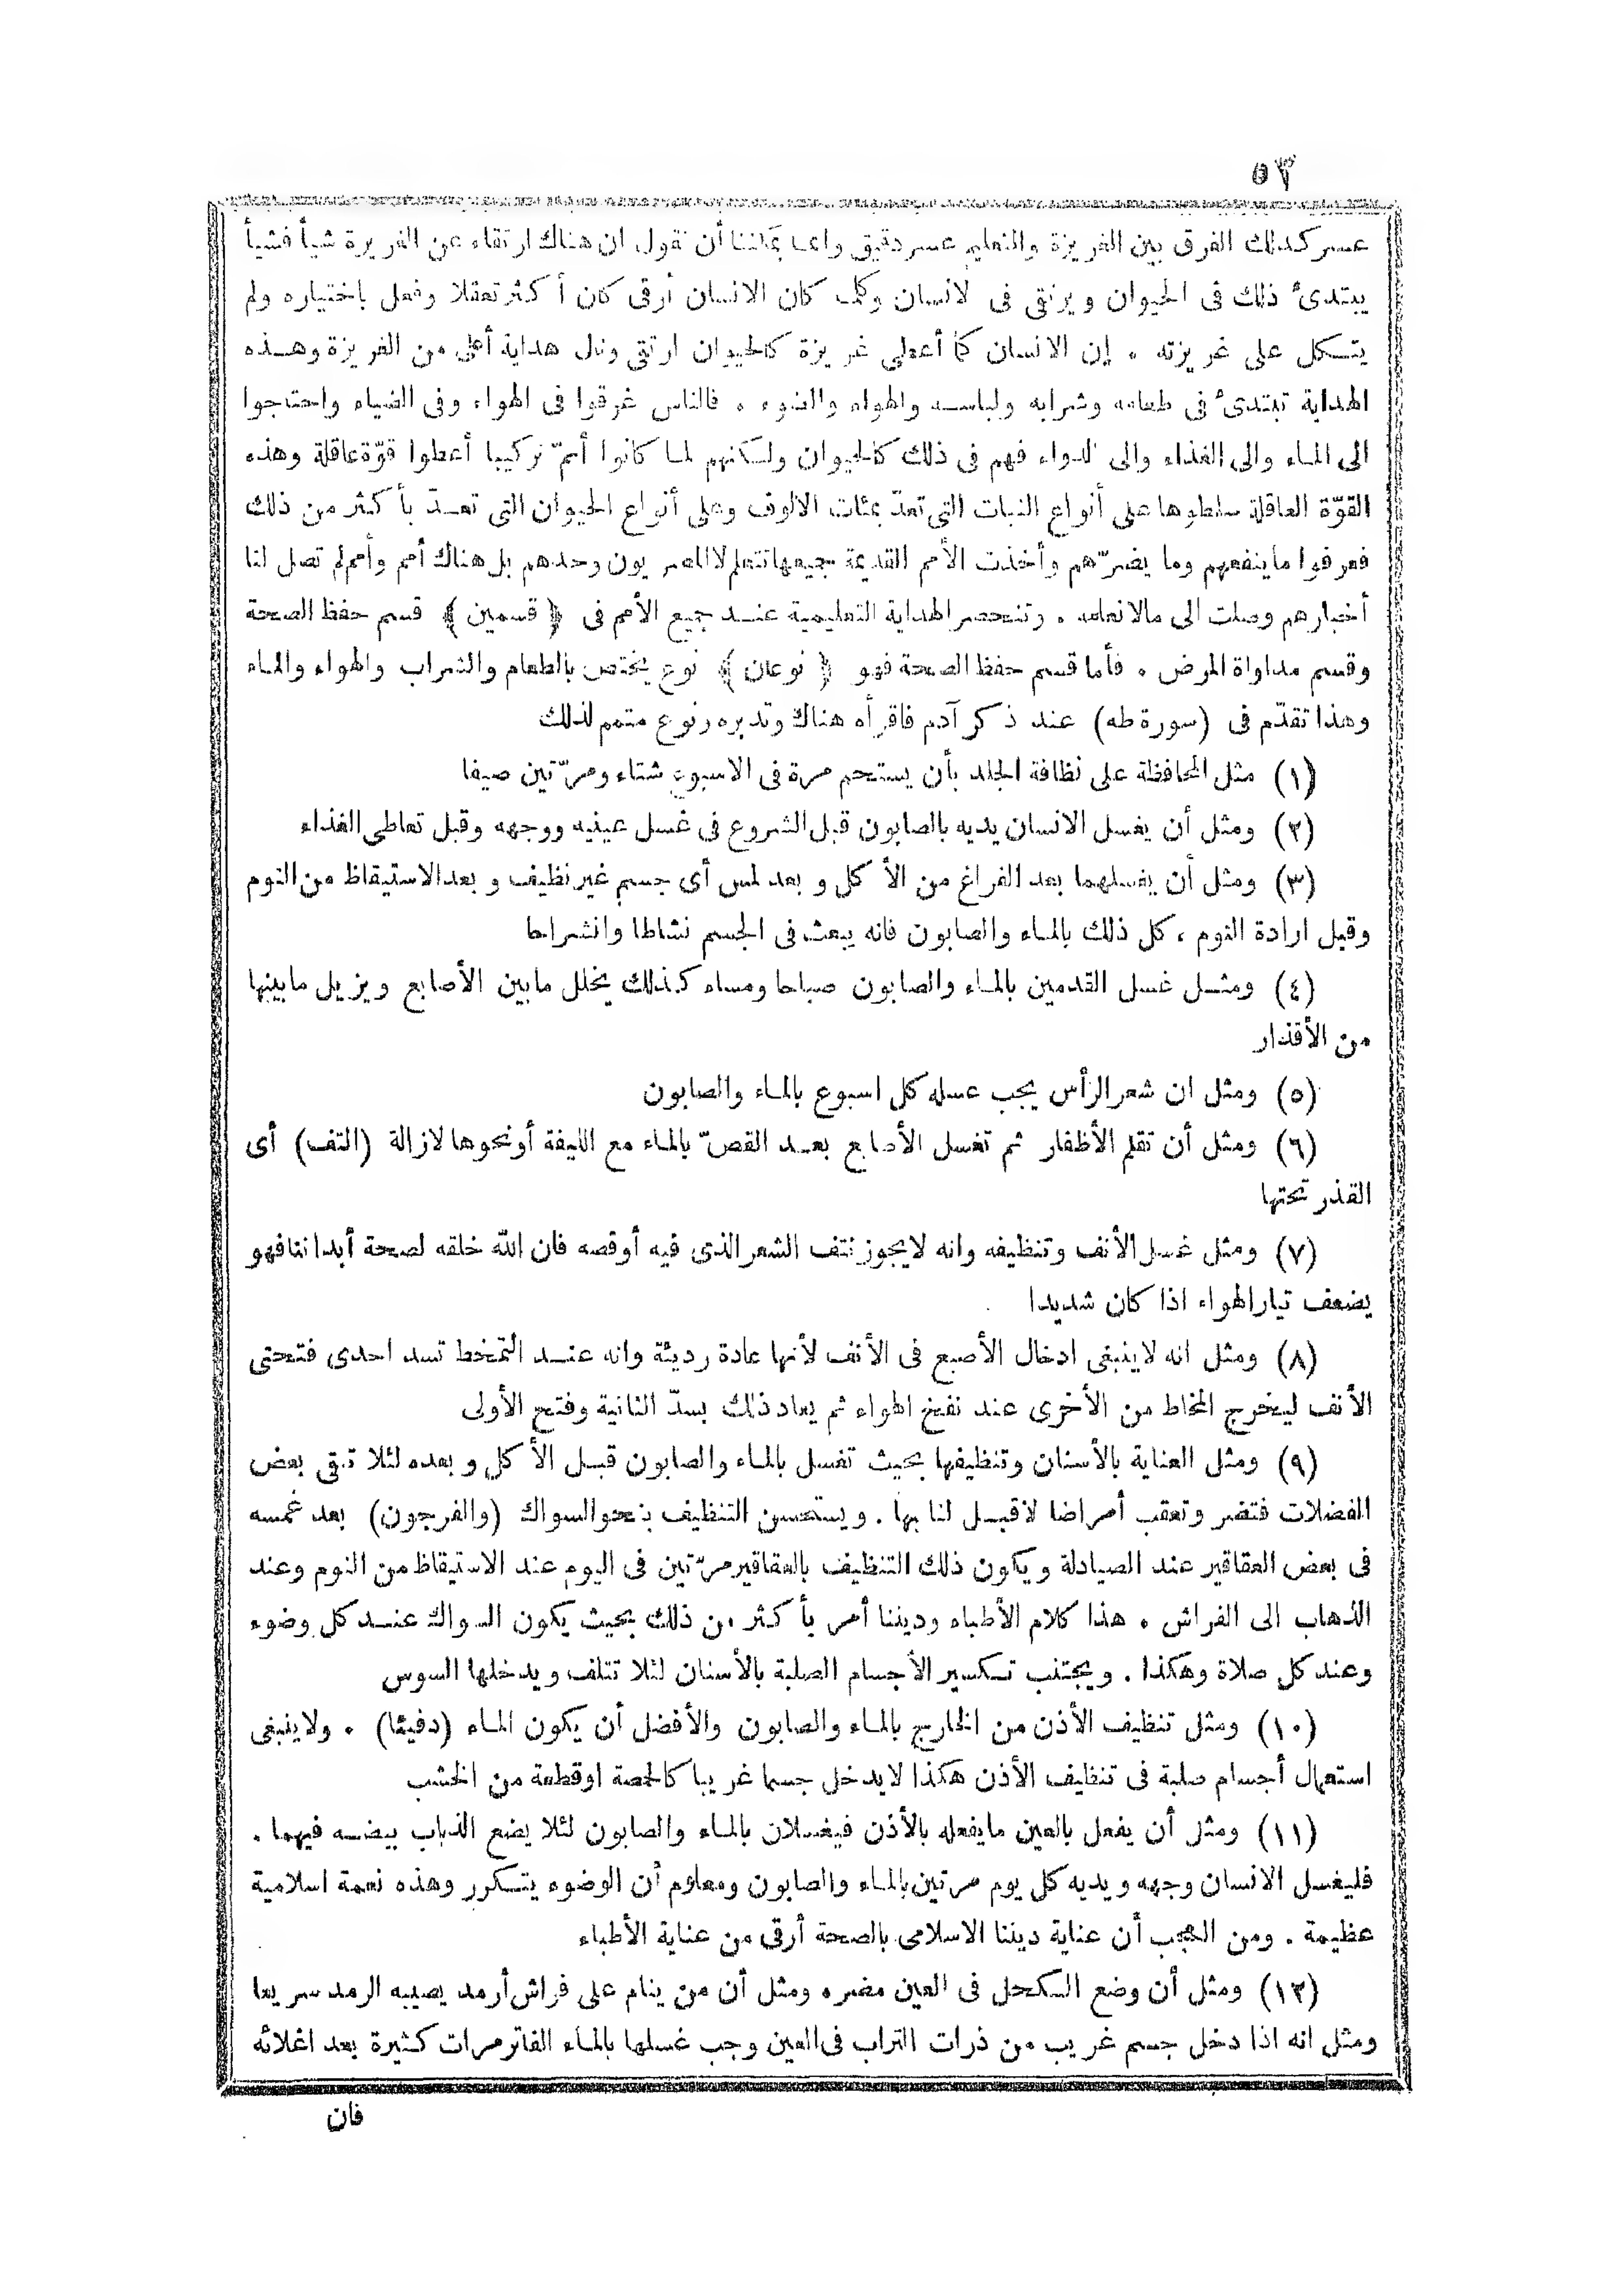 ٥٢
عسر كذلك الفرق بين الغريزة والتعليم عسر دقيق وانما يمكننا أن نقول ان هناك ارتقاء عن الغريزة شيأ فشيأ
يبتدئ ذلك فى الحيوان ويرتقى فى الانسان وكلما كان الانسان أرقى كان أكثر تعقلا وفعل باختياره ولم
يتكل على غريزته . إن الانسان كما أعطى غريزة كالحيوان ارتقى ونال هداية أعلى من الغريزة وهذه
الهداية تبتدئ فى طعامه وشرابه ولباسه والهواء والضوء . فالناس غرقوا فى الهواء وفى الضياء واحتاجوا
الى الماء والى الغذاء والى الدواء فهم فى ذلك كالحيوان ولكنهم لما كانوا أتمّ تركيبا أعطوا قوّة عاقلة وهذه
القوّة العاقلة سلطوها على أنواع النبات التى تعدّ بمئات الالوف وعلى أنواع الحيوان التى تعدّ بأكثر من ذلك
فعرفوا ماينفعهم وما يضرّهم وأخذت الأمم القديمة جميعها تتعلم لا المصريون وحدهم بل هناك أمم وأمم لم تصل لنا
أخبارهم وصلت الى مالانعلمه . وتنحصر الهداية التعليمية عند جميع الأمم فى ﴿ قسمين ﴾ قسم حفظ الصحة
وقسم مداواة المرض . فأما قسم حفظ الصحة فهو ﴿ نوعان ﴾ نوع يختص بالطعام والشراب والهواء والماء
وهذا تقدّم فى (سورة طه) عند ذكر آدم فاقرأه هناك وتدبره ونوع متمم لذلك
(١) مثل المحافظة على نظافة الجلد بأن يستحم مرة فى الاسبوع شتاء ومرّتين صيفا
(٢) ومثل أن يغسل الانسان يديه بالصابون قبل الشروع فى غسل عينيه ووجهه وقبل تعاطى الغذاء
(٣) ومثل أن يغسلهما بعد الفراغ من الأكل وبعد لمس أى جسم غير نظيف وبعد الاستيقاظ من النوم
وقبل ارادة النوم ، كل ذلك بالماء والصابون فانه يبعث فى الجسم نشاطا وانشراحا
(٤) ومثل غسل القدمين بالماء والصابون صباحا ومساء كذلك يخلل مابين الأصابع ويزيل مابينها
من الأقذار
(٥) ومثل ان شعر الرأس يجب غسله كل اسبوع بالماء والصابون
(٦) ومثل أن تقلم الأظفار ثم تغسل الأصابع بعد القصّ بالماء مع الليفة أونحوها لازالة (التف) أى
القذر تحتها
(٧) ومثل غسل الأنف وتنظيفه وانه لايجوز نتف الشعر الذى فيه أوقصه فان الله خلقه لصحة أبداننا فهو
يضعف تيار الهواء اذا كان شديدا
(٨) ومثل انه لاينبغى ادخال الأصبع فى الأنف لأنها عادة رديئة وانه عند التمخط تسد احدى فتحتى
الأنف ليخرج المخاط من الأخرى عند نفخ الهواء ثم يعاد ذلك بسدّ الثانية وفتح الأولى
(٩) ومثل العناية بالأسنان وتنظيفها بحيث تغسل بالماء والصابون قبل الأكل وبعده لئلا تبقى بعض
الفضلات فتضر وتعقب أمراضا لاقبل لنا بها . ويستحسن التنظيف بنحو السواك (والفرجون) بعد غمسه
فى بعض العقاقير عند الصيادلة ويكون ذلك التنظيف بالعقاقير مرّتين فى اليوم عند الاستيقاظ من النوم وعند
الذهاب الى الفراش . هذا كلام الأطباء وديننا أمر بأكثر من ذلك بحيث يكون السواك عند كل وضوء
وعند كل صلاة وهكذا . ويجتنب تكسير الأجسام الصلبة بالأسنان لئلا تتلف ويدخلها السوس
(١٠) ومثل تنظيف الأذن من الخارج بالماء والصابون والأفضل أن يكون الماء (دفيئا) . ولاينبغى
استعمال أجسام صلبة فى تنظيف الأذن هكذا لايدخل جسما غريبا كالحصة اوقطعة من الخشب
(١١) ومثل أن يفعل بالعين مايفعله بالأذن فيغسلان بالماء والصابون لئلا يضع الذباب بيضه فيهما .
فليغسل الانسان وجهه ويديه كل يوم مرتين بالماء والصابون ومعلوم أن الوضوء يتكرر وهذه نعمة اسلامية
عظيمة . ومن العجب أن عناية ديننا الاسلامى بالصحة أرقى من عناية الأطباء
(١٢) ومثل أن وضع الكحل فى العين مضره ومثل أن من ينام على فراش أرمد يصيبه الرمد سريعا
ومثل انه اذا دخل جسم غريب من ذرات التراب فى العين وجب غسلها بالماء الفاتر مرات كثيرة بعد اغلائه
فان